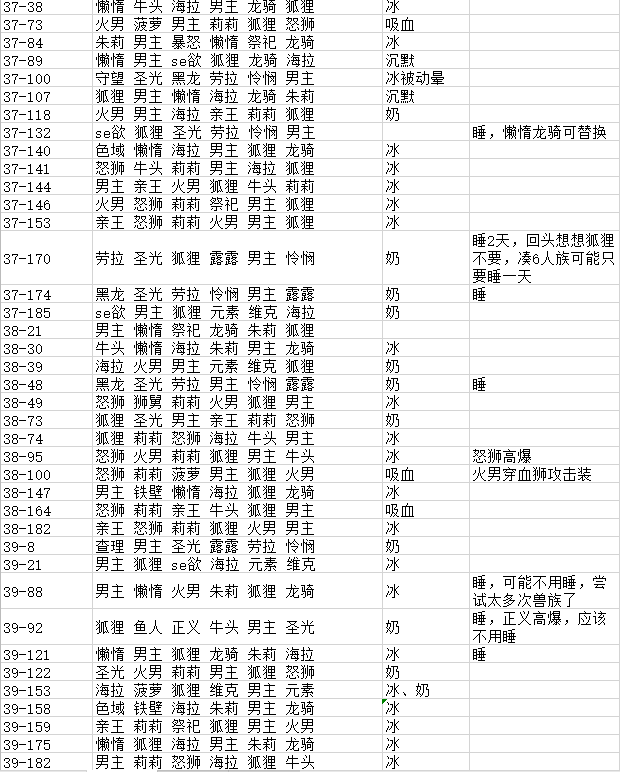 37-38 冰 牛头 海拉 男主 龙骑 狐狸 冰
37-73 火男 菠萝 男主 莉莉 狐狸 怒狮 吸血
37-84 朱莉 男主 暴怒 懒惰 祭祀 龙骑 冰
37-89 懒惰 男主 se欲 狐狸 龙骑 海拉 沉默
37-100 守望 圣光 黑龙 劳拉 怜悯 男主 冰被动晕
37-107 狐狸 男主 懒惰 海拉 龙骑 朱莉 沉默
37-118 火男 男主 海拉 亲王 莉莉 狐狸 奶
37-132 se欲 狐狸 圣光 劳拉 怜悯 男主 睡，懒惰龙骑可替换
37-140 色域 懒惰 海拉 男主 狐狸 龙骑 冰
37-141 怒狮 牛头 莉莉 男主 海拉 狐狸 冰
37-144 男主 亲王 火男 狐狸 牛头 莉莉 冰
37-146 火男 怒狮 莉莉 祭祀 男主 狐狸 冰
37-153 亲王 怒狮 莉莉 火男 男主 狐狸 冰
37-170 劳拉 圣光 狐狸 露露 男主 怜悯 奶 睡2天，回头想想狐狸
不要，凑6人族可能只
要睡一天
37-174 黑龙 圣光 劳拉 怜悯 男主 露露 奶 睡
37-185 se欲 男主 狐狸 元素 维克 海拉 奶
38-21 男主 懒惰 祭祀 龙骑 朱莉 狐狸
38-30 牛头 懒惰 海拉 朱莉 男主 龙骑 冰
38-39 海拉 火男 男主 元素 维克 狐狸 奶
38-48 黑龙 圣光 劳拉 男主 怜悯 露露 奶 睡
38-49 怒狮 狮舅 莉莉 火男 狐狸 男主 冰
38-73 狐狸 圣光 男主 亲王 莉莉 怒狮 奶
38-74 狐狸 莉莉 怒狮 海拉 牛头 男主 冰
38-95 怒狮 火男 莉莉 狐狸 男主 牛头 冰 怒狮高爆
38-100 怒狮 莉莉 菠萝 男主 狐狸 火男 吸血 火男穿血狮攻击装
38-147 男主 铁壁 懒惰 海拉 狐狸 龙骑 冰
38-164 怒狮 莉莉 亲王 牛头 狐狸 男主 吸血
38-182 亲王 怒狮 莉莉 狐狸 火男 男主 冰
39-8 查理 男主 圣光 露露 劳拉 怜悯 奶
39-21 男主 狐狸 se欲 海拉 元素 维克 冰
39-88 男主 懒惰 火男 朱莉 狐狸 龙骑 冰 睡，可能不用睡，尝
试太多次兽族了
39-92 狐狸 鱼人 正义 牛头 男主 圣光 奶 睡，正义高爆，应该
不用睡
39-121 懒惰 男主 狐狸 龙骑 朱莉 海拉 冰 睡
39-122 圣光 火男 莉莉 男主 狐狸 怒狮 奶
39-153 海拉 菠萝 狐狸 维克 男主 元素 冰、奶
39-158 色域 铁壁 海拉 朱莉 男主 龙骑 冰
39-159 亲王 莉莉 祭祀 狐狸 男主 火男 冰
39-175 懒惰 狐狸 海拉 男主 朱莉 龙骑 冰
39-182 男主 莉莉 怒狮 海拉 狐狸 牛头 冰